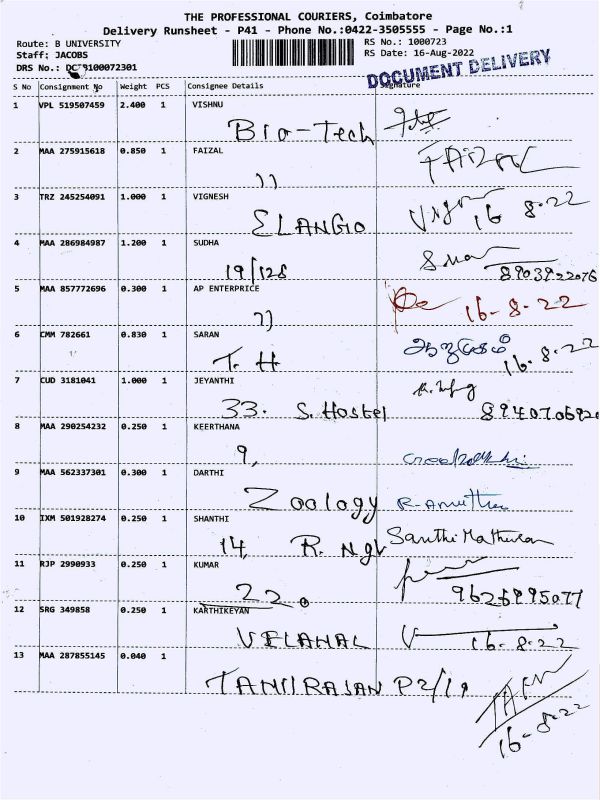 THE PROFESSIONAL COURIERS, Coimbatore
Delivery Runsheet - P41 - Phone No.:0422-3505555 - Page No.:1
Route: B UNIVERSITY RS No.: 1000723
Staff: JACOBS RS Date: 16-Aug-2022
DRS No.: 3100072301
DOCUMENT DELIVERY
S No Consignment No Weight PCS Consignee Details Signature
1 VPL 519507459 2.400 1 VISHNU
Bio-Tech
2 MAA 275915618 0.850 1 FAIZAL
)) FAIZAL
3 TRZ 245254091 1.000 1 VIGNESH
ELANGO 16 8-22
4 MAA 286984987 1.200 1 SUDHA
19/128 8903922076
5 MAA 857772696 0.300 1 AP ENTERPRICE
)) 16-8-22
6 CMM 782661 0.830 1 SARAN
T. H 16-8-22
7 CUD 3181041 1.000 1 JEYANTHI
33. S. Hostel 8940706920
8 MAA 290254232 0.250 1 KEERTHANA
9,
9 MAA 562337301 0.300 1 DARTHI
Zoology R-Amutha
10 IXM 501928274 0.250 1 SHANTHI
14, R. Ngr Santhi
11 RJP 2990933 0.250 1 KUMAR
22. 9626995077
12 SRG 349858 0.250 1 KARTHIKEYAN
VELAHAL 16-8-22
13 MAA 287855145 0.040 1
TAMIRAJAN P2/19
16-8-22